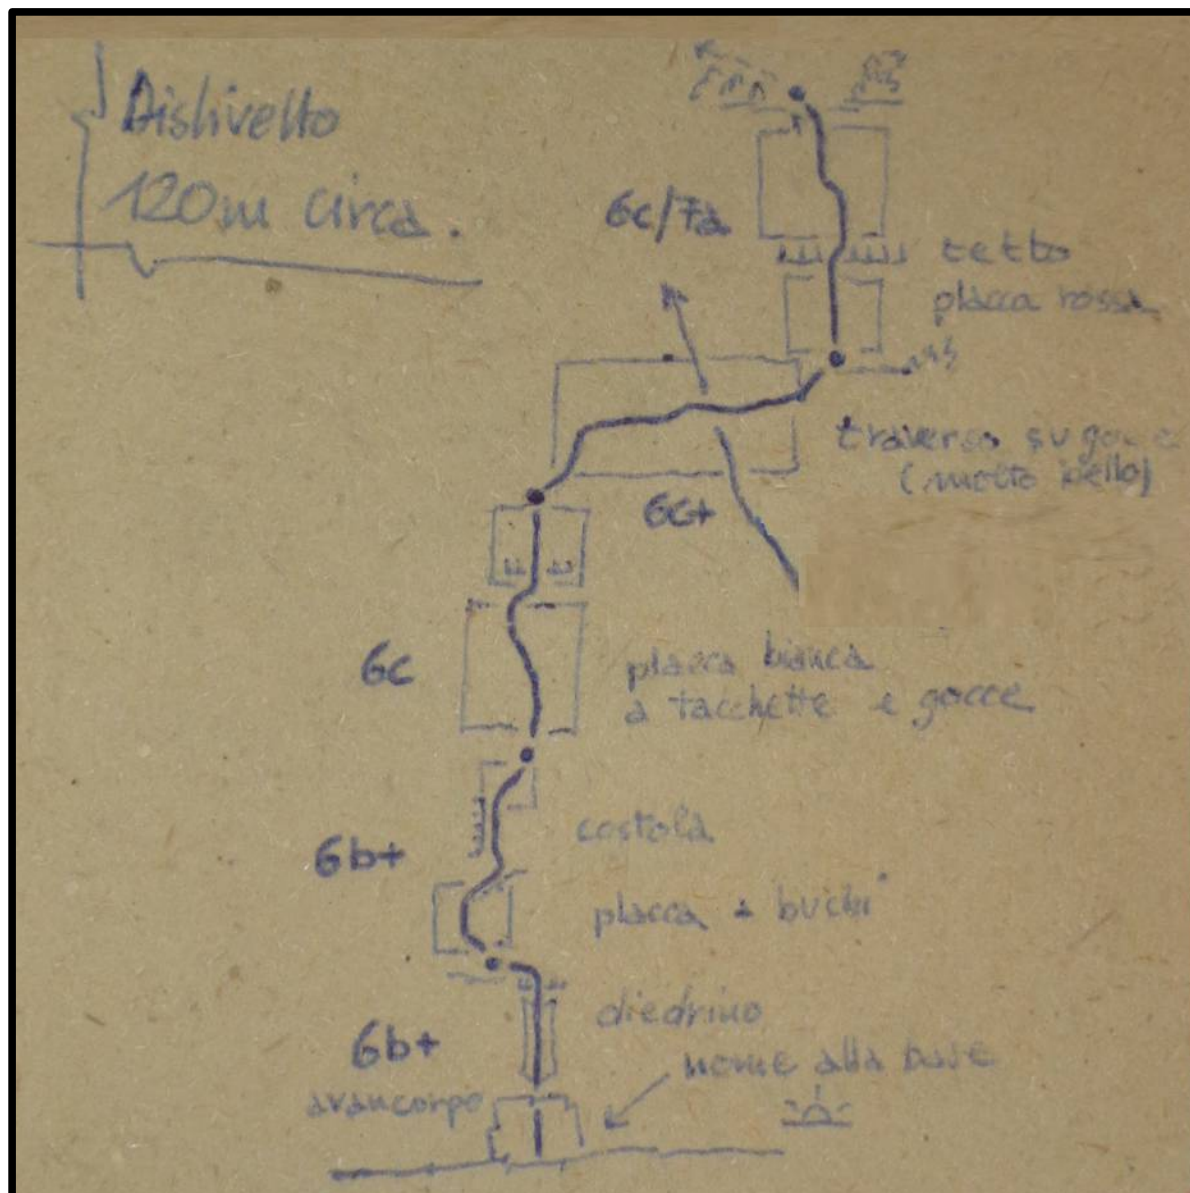 Dislivello
120m circa.
6c/7a
tetto
placca rossa
traverso su
(molto bello)
6c+
6c
placca bianca
a tacchette e gocce
costola
6b+
placca a buchi
diedrino
6b+
nome alla base
avancorpo